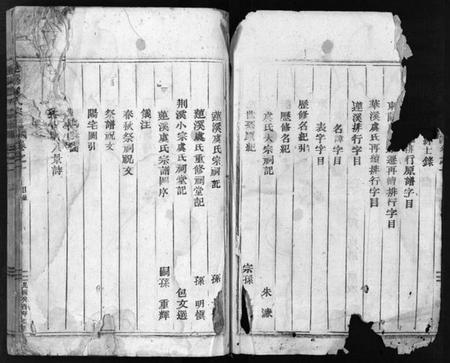 士錄
排行原譜字目
遷再續排行字目
華溪虞氏再續排行字目
蓮溪排行字目
名諱字目
表字字目
歷修名紀引
歷修名紀
虞氏大宗祠記 朱濂
宗孫
蓮溪虞氏宗祠記 孫
蓮溪虞氏重修祠堂記 孫 明償
荆溪小宗虞氏祠堂記 包文選
蓮溪虞氏宗譜圖序 嗣孫 重輝
儀注
春秋祭祠祝文
祭譜祝文
陽宅圖引
八景詩